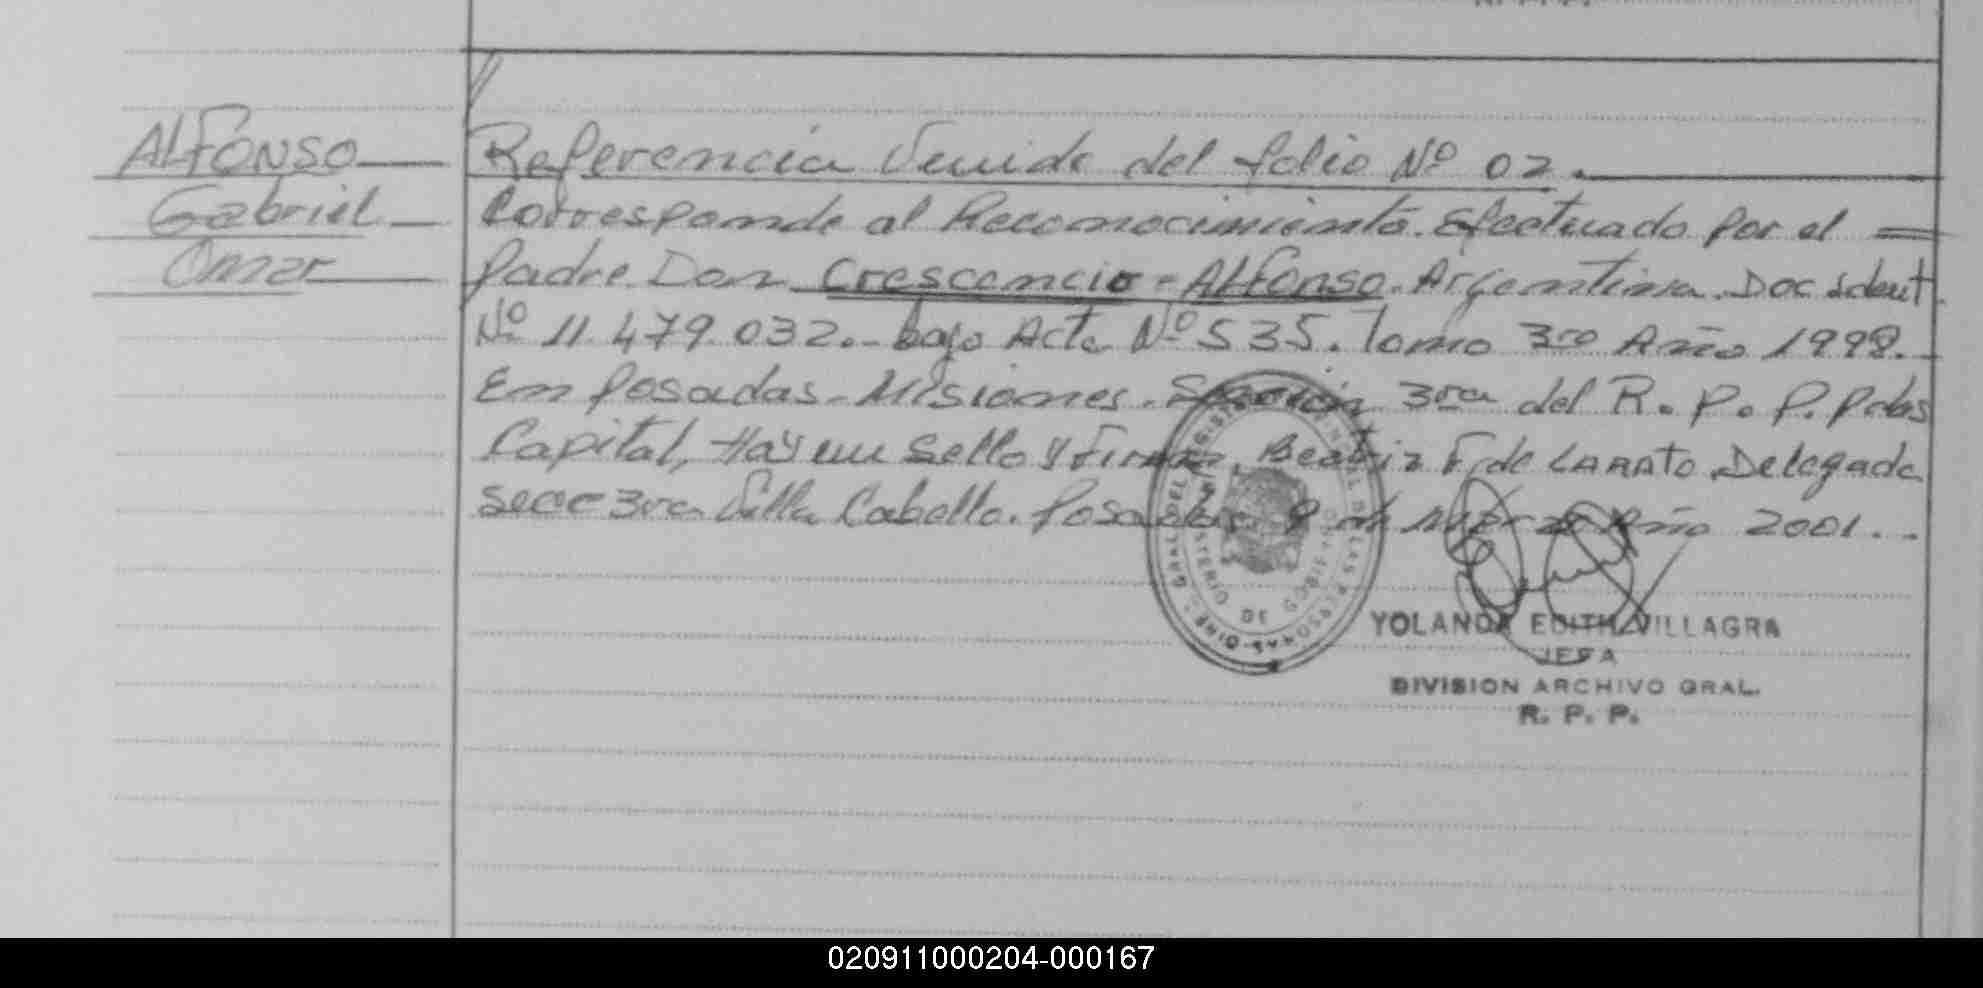 ALFONSO
Gabriel
Omar
Referencia Venida del folio Nº 02.
Corresponde al Reconocimiento. Efectuado Por el
Padre Don Crescencio - ALFONSO. Argentina. Doc Ident.
Nº 11.479.032.- bajo Acta Nº 535. Tomo 3ro Año 1998.
En Posadas - Misiones. Sección 3ra del R. P. P. Pdas
Capital, Hay un Sello y Firma. Beatriz F. de LARATO Delegada
Secc 3ra Villa Cabello. Posadas, 9 de Marzo Año 2001.-
YOLANDA EDITH VILLAGRA
JEFA
DIVISION ARCHIVO GRAL.
R. P. P.
020911000204-000167